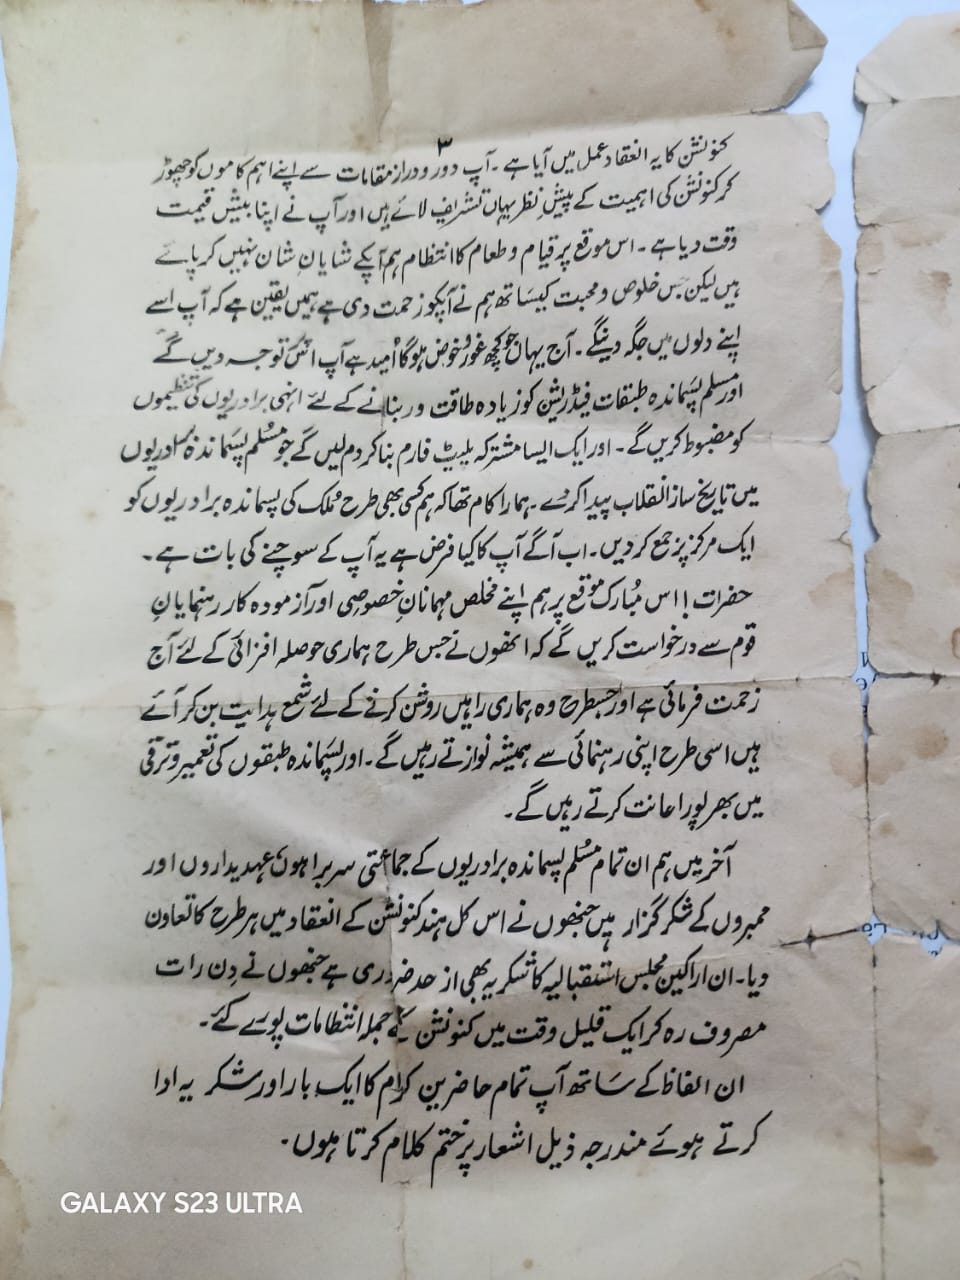 ۳
کنونشن کا یہ انعقاد عمل میں آیا ہے۔ آپ دور و دراز مقامات سے اپنے اہم کاموں کو چھوڑ
کر کنونشن کی اہمیت کے پیشِ نظر یہاں تشریف لائے ہیں اور آپ نے اپنا بیش قیمت
وقت دیا ہے۔ اس موقع پر قیام و طعام کا انتظام ہم آپکے شایانِ شان نہیں کر پائے
ہیں لیکن جس خلوص و محبت کیساتھ ہم نے آپکو زحمت دی ہے ہمیں یقین ہے کہ آپ اسے
اپنے دلوں میں جگہ دینگے۔ آج یہاں جو کچھ غور و خوض ہوگا اُمید ہے آپ اس توجہ دیں گے
اور مسلم پسماندہ طبقات فیڈریشن کو زیادہ طاقت ور بنانے کے لئے انہی برادریوں کی تنظیموں
کو مضبوط کریں گے۔ اور ایک ایسا مشترکہ پلیٹ فارم بنا کر دم لیں گے جو مُسلم پسماندہ برادریوں
میں تاریخ ساز انقلاب پیدا کردے۔ ہمارا کام تھا کہ ہم کسی بھی طرح مُلک کی پسماندہ برادریوں کو
ایک مرکز پر جمع کر دیں۔ اب آگے آپ کا کیا فرض ہے یہ آپ کے سوچنے کی بات ہے۔
حضرات! اس مُبارک موقع پر ہم اپنے مخلص مہمانانِ خصوصی اور آزمودہ کار رہنمایانِ
قوم سے درخواست کریں گے کہ انھوں نے جس طرح ہماری حوصلہ افزائی کے لئے آج
زحمت فرمائی ہے اور جسطرح وہ ہماری راہیں روشن کرنے کے لئے شمع ہدایت بن کر آئے
ہیں اسی طرح اپنی رہنمائی سے ہمیشہ نوازتے رہیں گے۔ اور پسماندہ طبقوں کی تعمیر و ترقی
میں بھرپور اعانت کرتے رہیں گے۔
آخر میں ہم ان تمام مُسلم پسماندہ برادریوں کے جماعتی سربراہوں عہدیداروں اور
ممبروں کے شکر گزار ہیں جنھوں نے اس کل ہند کنونشن کے انعقاد میں ہر طرح کا تعاون
دیا۔ ان اراکین مجلس استقبالیہ کا شکریہ بھی از حد ضروری ہے جنھوں نے دِن رات
مصروف رہ کر ایک قلیل وقت میں کنونشن کے جملہ انتظامات پورے کئے۔
ان الفاظ کے ساتھ آپ تمام حاضرین کرام کا ایک بار اور شکریہ ادا
کرتے ہوئے مندرجہ ذیل اشعار پر ختم کلام کرتا ہوں۔
GALAXY S23 ULTRA